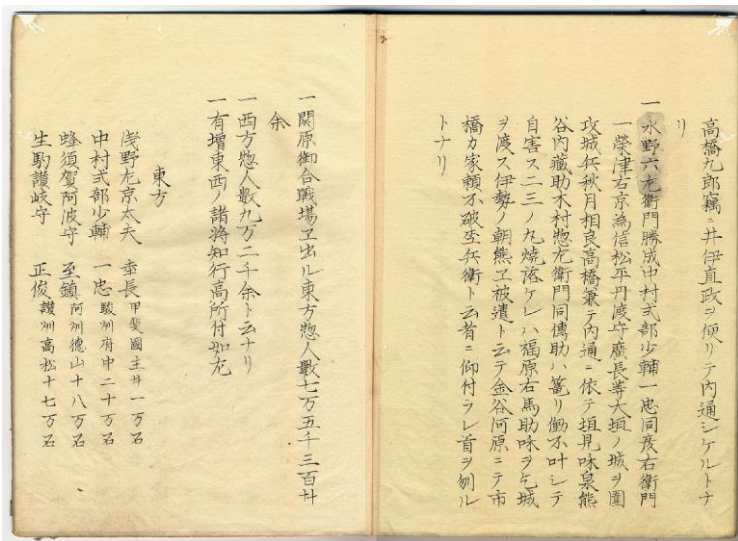 高橋九郎竊ニ井伊直政ヲ便リテ内通シケルトナ
リ
一水野六左衛門勝成中村式部少輔一忠同彦右衛門
一榮津右京為信松平丹波守廣長等大垣ノ城ヲ圍
攻城兵秋月相良高橋兼テ内通ニ依テ垣見味泉熊
谷内藏助木村惣左衛門同傳助ハ篭リ働不叶シテ
自害ス二三ノ丸焼落ケレハ福原右馬助味ヲ乞城
ヲ渡ス伊勢ノ朝熊ヱ被遣ト云テ金谷河原ニテ市
橋カ家頼不破杢兵衛ト云者ニ仰付ラレ首ヲ刎ル
トナリ
一関原御合戦場ヱ出ル東方惣人數七万五千三百廿
余
一西方惣人數九万二千余ト云ナリ
一有増東西ノ諸将知行高所付如左
東方
浅野左京太夫 幸長 甲斐國主廿一万石
中村式部少輔 一忠 駿州府中二十万石
蜂須賀阿波守 至鎮 阿州徳山十八万石
生駒讃岐守 正俊 讃州高松十七万石